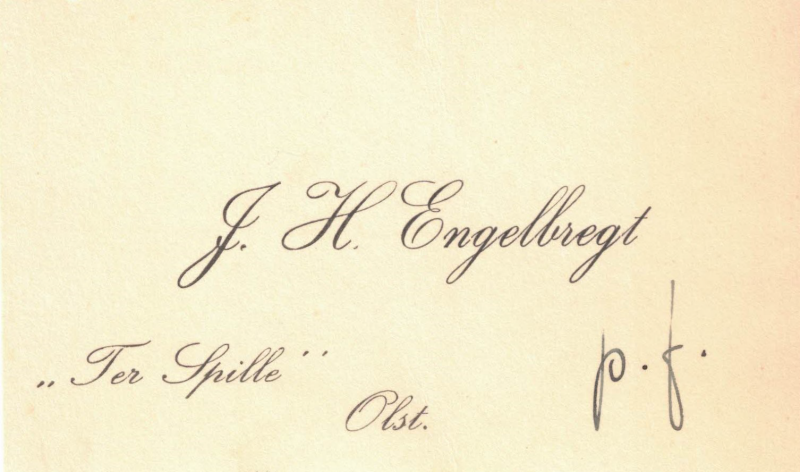 J. H. Engelbregt
„Ter Spille"
Olst.
p. f.